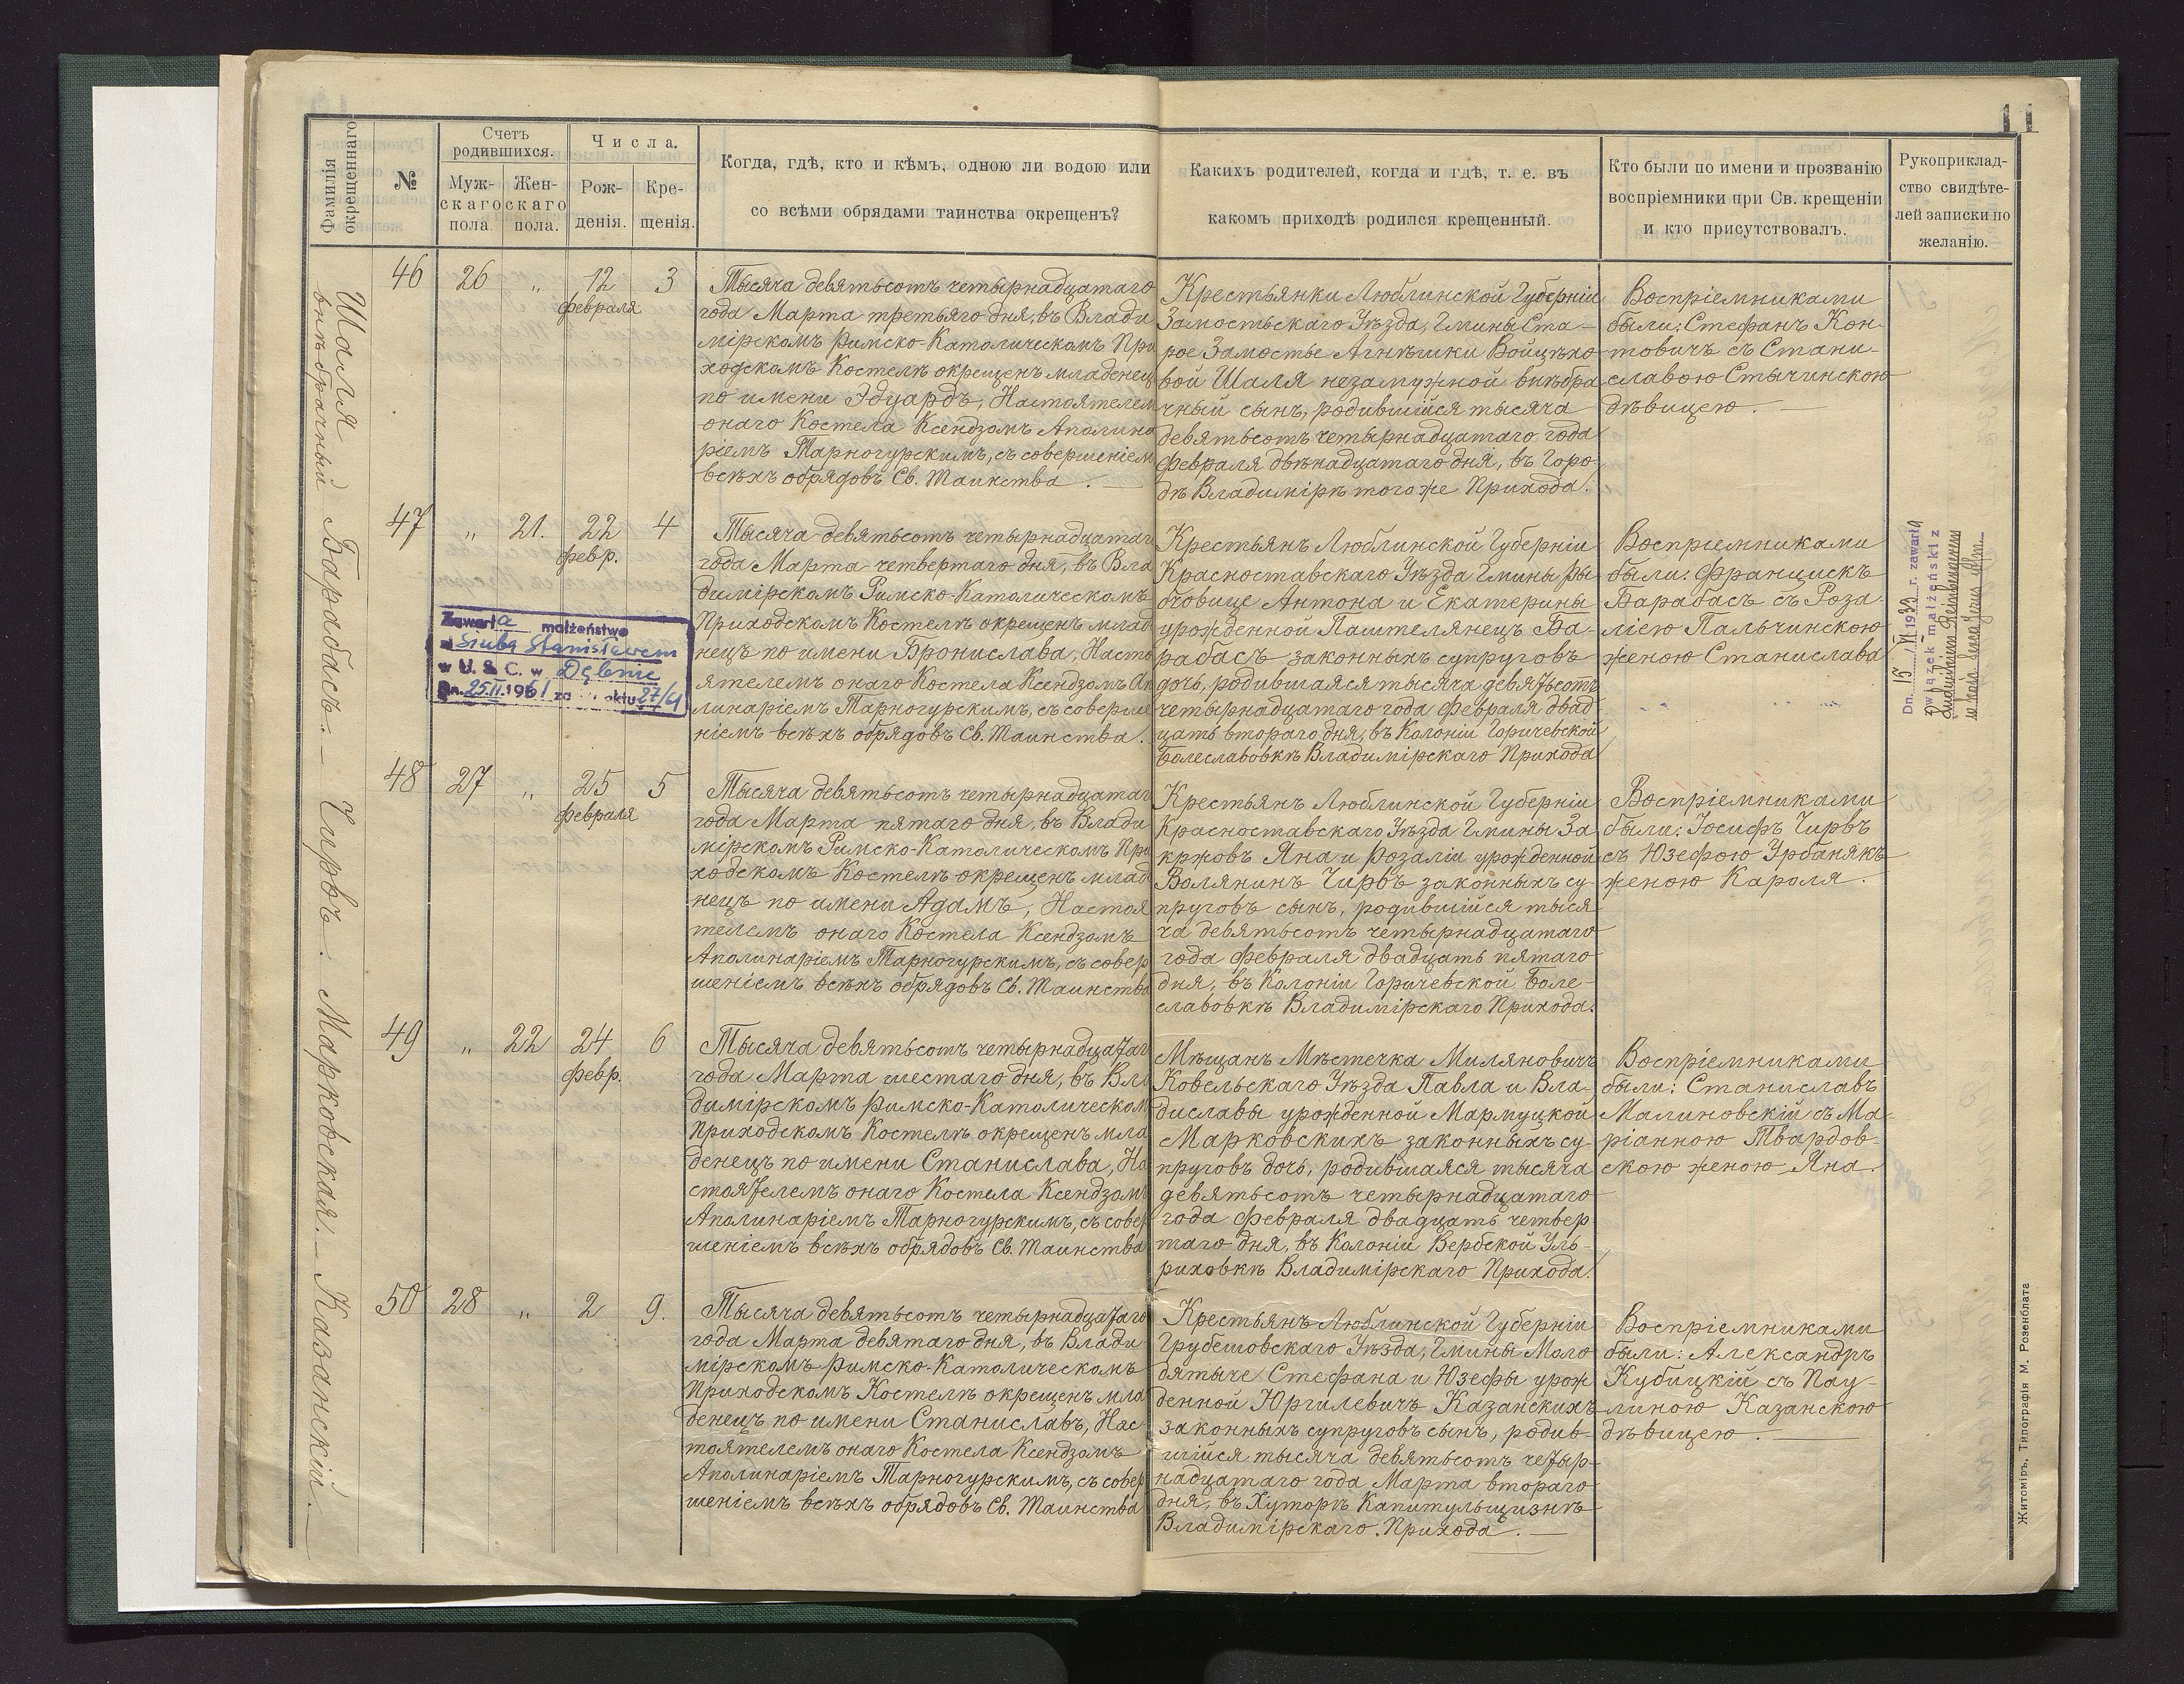 11
Фамилія окрещеннаго.
№
Счетъ родившихся.
Муж-
скаго
пола.
Жен-
скаго
пола.
Числа.
Рож-
денія.
Кре-
щенія.
Когда, гдѣ, кто и кѣмъ, одною ли водою или
со всѣми обрядами таинства окрещенъ?
Какихъ родителей, когда и гдѣ, т. е. въ
какомъ приходѣ родился крещенный.
Кто были по имени и прозванію
воспріемники при Св. крещеніи
и кто присутствовалъ.
Рукоприклад-
ство свидѣте-
лей записки по
желанію.
Шаля
внѣбрачный
46
26
"
12
февраля
3
Тысяча девятьсотъ четырнадцатаго
года Марта третьяго дня, въ Влади
мірскомъ Римско-Католическомъ При
ходскомъ Костелѣ окрещенъ младенец
по имени Эдуардъ, Настоятелем
онаго Костела Ксендзомъ Аполина
ріемъ Тарногурскимъ, съ совершеніем
всѣхъ обрядовъ Св. Таинства.
Крестьянки Люблинской Губерніи
Замостьскаго Уѣзда, Гмины Ста-
рое Замостье Агнѣшки Войцѣхо
вой Шаля незамужной внѣбра
чный сынъ, родившійся тысяча
девятьсотъ четырнадцатаго года
февраля двѣнадцатаго дня, въ Горо-
дѣ Владимірѣ того же Прихода.
Воспріемниками
были: Стефанъ Кон-
товичъ съ Стани-
славою Стычинскою
дѣвицею.
Барабасъ.
47
"
21.
22
февр.
4
Тысяча девятьсотъ четырнадцатаг
года Марта четвертаго дня, въ Вла
димірскомъ Римско-Католическомъ
Приходскомъ Костелѣ окрещенъ млад
нецъ по имени Бронислава, Насто
ятелемъ онаго Костела Ксендзомъ Ап
линаріемъ Тарногурскимъ, съ соверше
ніемъ всѣхъ обрядовъ Св. Таинства.
Крестьянъ Люблинской Губерніи
Красноставскаго Уѣзда Гмины Ры
бчовице Антона и Екатерины
урожденной Паштелянецъ Ба-
рабасъ законныхъ супруговъ
дочь, родившаяся тысяча девятьсотъ
четырнадцатаго года февраля двад
цать втораго дня, въ Колоніи Горичевской
Болеславовкѣ Владимірскаго Прихода
Воспріемниками
были: Францискъ
Барабасъ съ Роза-
ліею Пальчинскою
женою Станислава
Zawarła małżeństwo
z Siuba Stanisławem
w U. S. C. w Dębnie
Dn. 25.II.1961 za aktu 27/61
Dn. 15/VI 1939 r. zawarła
związek małżeński z
Чирвъ.
48
27
"
25
февраля
5
Тысяча девятьсотъ четырнадцатаг
года Марта пятаго дня, въ Влади
мірскомъ Римско-Католическомъ При
ходскомъ Костелѣ окрещенъ млад
нецъ по имени Адамъ, Настоя
телемъ онаго Костела Ксендзомъ
Аполинаріемъ Тарногурскимъ, съ совер
шеніемъ всѣхъ обрядовъ Св. Таинства
Крестьянъ Люблинской Губерніи
Красноставскаго Уѣзда Гмины За
кржовъ Яна и Розаліи урожденной
Волянинъ Чирвъ законныхъ су-
пруговъ сынъ, родившійся тыся
ча девятьсотъ четырнадцатаго
года февраля двадцать пятаго
дня, въ Колоніи Горичевской Боле-
славовкѣ Владимірскаго Прихода.
Воспріемниками
были: Іосифъ Чирвъ
съ Юзефою Урбанякъ
женою Кароля.
Марковская.
49
"
22
24
февр.
6
Тысяча девятьсотъ четырнадцатаг
года Марта шестаго дня, въ Вла
димірскомъ Римско-Католическом
Приходскомъ Костелѣ окрещенъ мла
денецъ по имени Станислава, На
стоятелемъ онаго Костела Ксендзом
Аполинаріемъ Тарногурскимъ, съ совер
шеніемъ всѣхъ обрядовъ Св. Таинства
Мѣщанъ Мѣстечка Миляновичъ
Ковельскаго Уѣзда Павла и Вла-
диславы урожденной Мармуцкой
Марковскихъ законныхъ су-
пруговъ дочь, родившаяся тысяча
девятьсотъ четырнадцатаго
года февраля двадцать четвер
таго дня, въ Колоніи Вербской Уль-
риховкѣ Владимірскаго Прихода.
Воспріемниками
были: Станиславъ
Малиновскій съ Ма-
ріанною Твардов-
скою женою Яна.
Казанскій.
50
28
"
2
9.
Тысяча девятьсотъ четырнадцатаго
года Марта девятаго дня, въ Влади
мірскомъ Римско-Католическомъ
Приходскомъ Костелѣ окрещенъ мла
денецъ по имени Станиславъ, Нас-
тоятелемъ онаго Костела Ксендзомъ
Аполинаріемъ Тарногурскимъ, съ совер
шеніемъ всѣхъ обрядовъ Св. Таинства
Крестьянъ Люблинской Губерніи
Грубешовскаго Уѣзда, Гмины Моло
дятыче Стефана и Юзефы урож
денной Юргилевичъ Казанскихъ
законныхъ супруговъ сынъ, родив-
шійся тысяча девятьсотъ четыр-
надцатаго года Марта втораго
дня, въ Хуторѣ Капитульщизнѣ
Владимірскаго Прихода.
Воспріемниками
были: Александръ
Кубицкій съ Пау-
линою Казанскою
дѣвицею.
Житоміръ, Типографія М. Розенблата